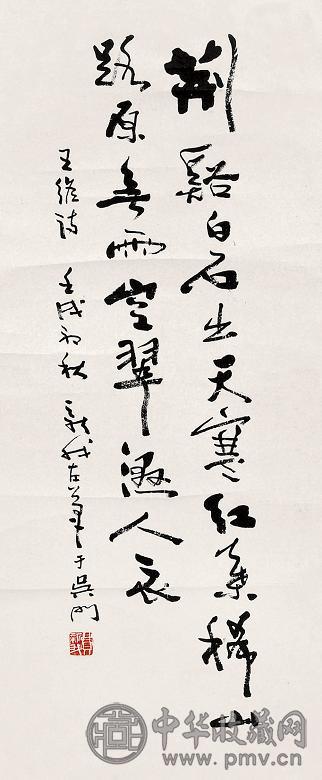 荆谿白石出天寒红叶稀山
路原无雨空翠湿人衣
王维诗 壬戌初秋 新我左笔于吴门
中华收藏网
www.pmv.cn